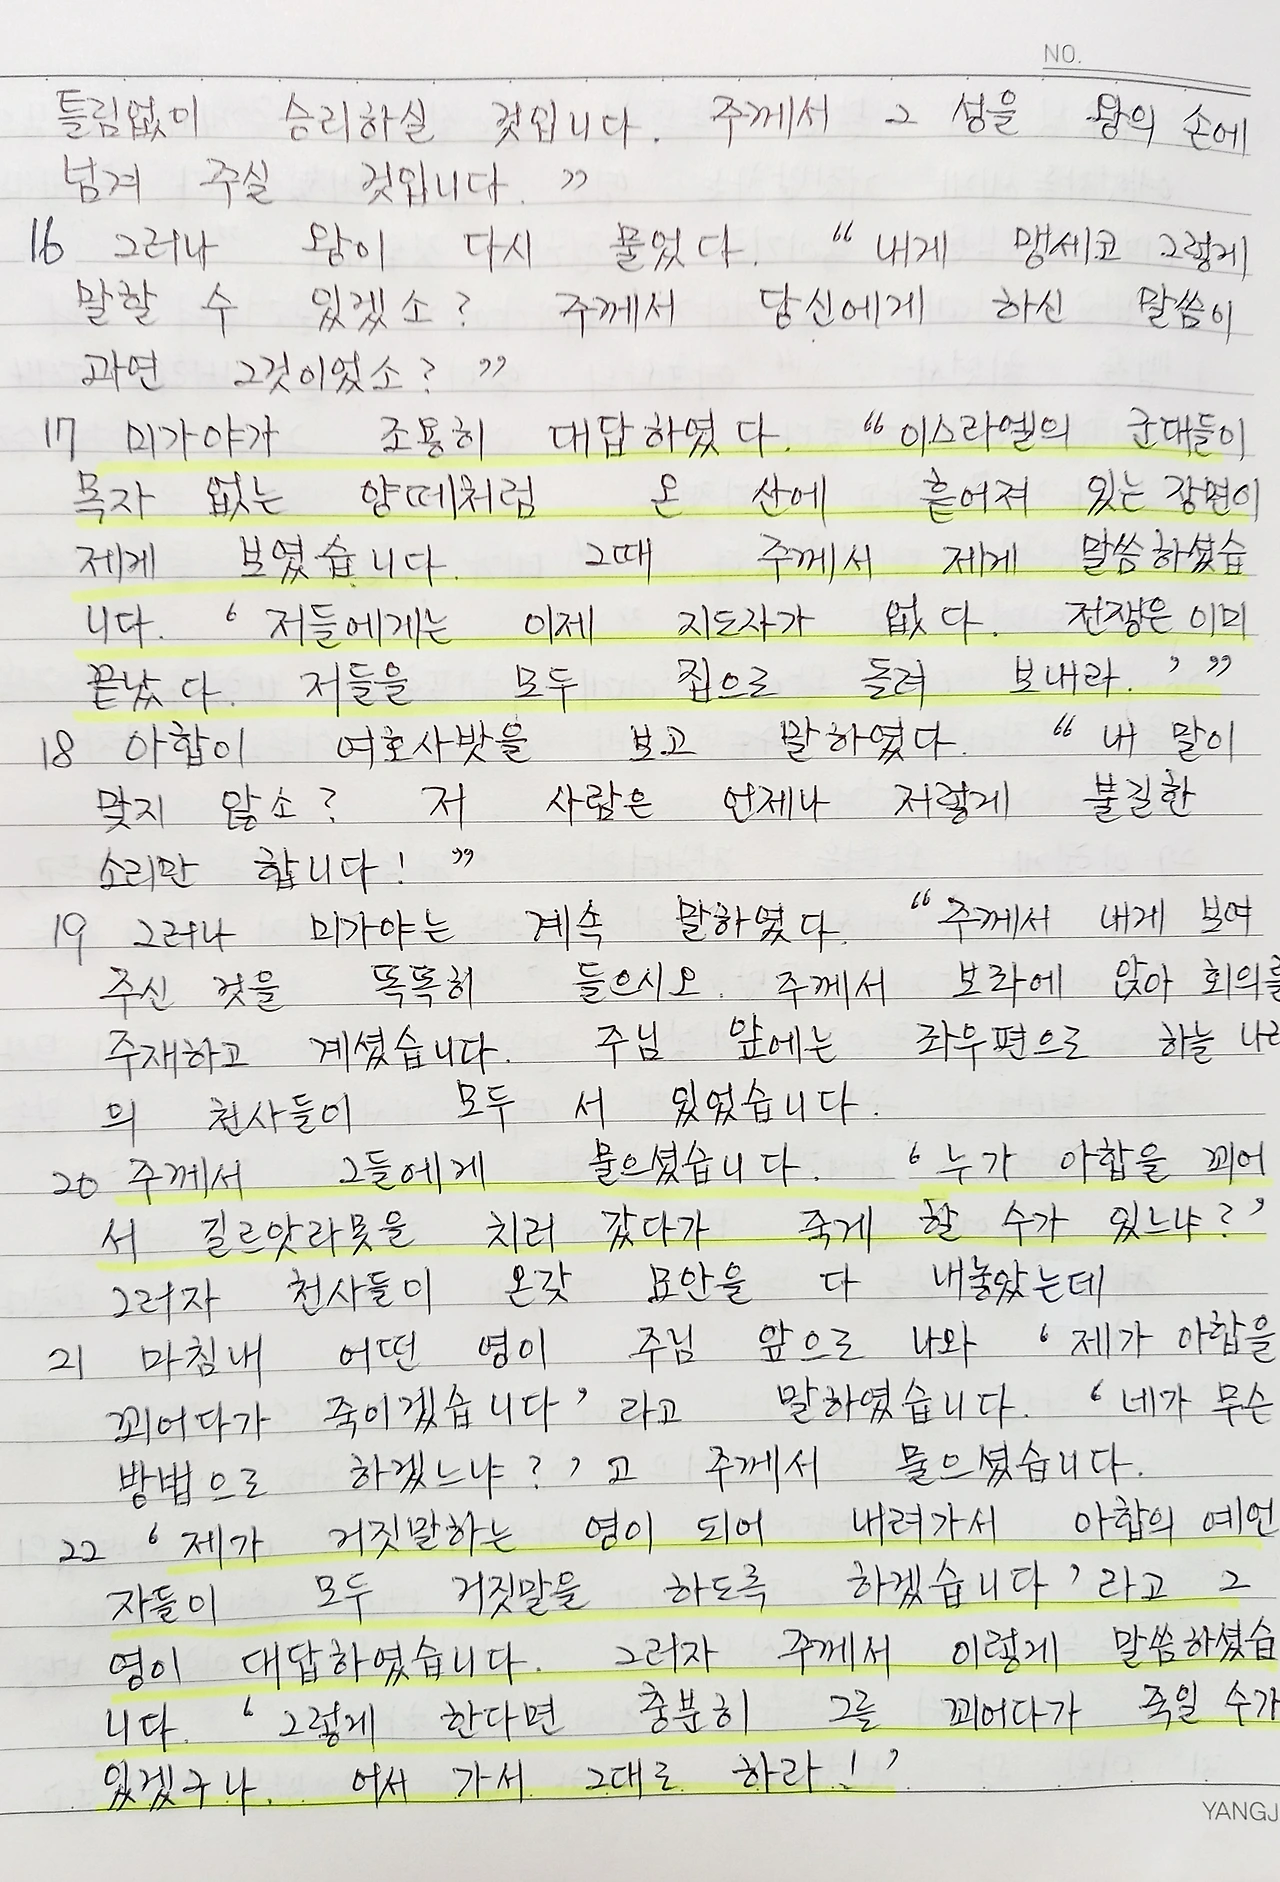 NO.
틀림없이 승리하실 것입니다. 주께서 그 성을 왕의 손에
넘겨 주실 것입니다. ”
16 그러나 왕이 다시 물었다. “ 내게 맹세코 그렇게
말할 수 있겠소? 주께서 당신에게 하신 말씀이
과연 그것이었소? ”
17 미가야가 조용히 대답하였다. “이스라엘의 군대들이
목자 없는 양떼처럼 온 산에 흩어져 있는 장면이
제게 보였습니다. 그때 주께서 제게 말씀하셨습
니다. ‘ 저들에게는 이제 지도자가 없다. 전쟁은 이미
끝났다. 저들을 모두 집으로 돌려 보내라. ’ ”
18 아합이 여호사밧을 보고 말하였다. “ 내 말이
맞지 않소? 저 사람은 언제나 저렇게 불길한
소리만 합니다! ”
19 그러나 미가야는 계속 말하였다. “주께서 내게 보여
주신 것을 똑똑히 들으시오. 주께서 보좌에 앉아 회의를
주재하고 계셨습니다. 주님 앞에는 좌우편으로 하늘 나라
의 천사들이 모두 서 있었습니다.
20 주께서 그들에게 물으셨습니다. ‘ 누가 아합을 꾀어
서 길르앗라못을 치러 갔다가 죽게 할 수가 있느냐? ’
그러자 천사들이 온갖 묘안을 다 내놓았는데
21 마침내 어떤 영이 주님 앞으로 나와 ‘ 제가 아합을
꾀어다가 죽이겠습니다 ’ 라고 말하였습니다. ‘ 네가 무슨
방법으로 하겠느냐? ’ 고 주께서 물으셨습니다.
22 ‘ 제가 거짓말하는 영이 되어 내려가서 아합의 예언
자들이 모두 거짓말을 하도록 하겠습니다 ’ 라고 그
영이 대답하였습니다. 그러자 주께서 이렇게 말씀하셨습
니다. ‘ 그렇게 한다면 충분히 그를 꾀어다가 죽일 수가
있겠구나. 어서 가서 그대로 하라! ’
YANGJ